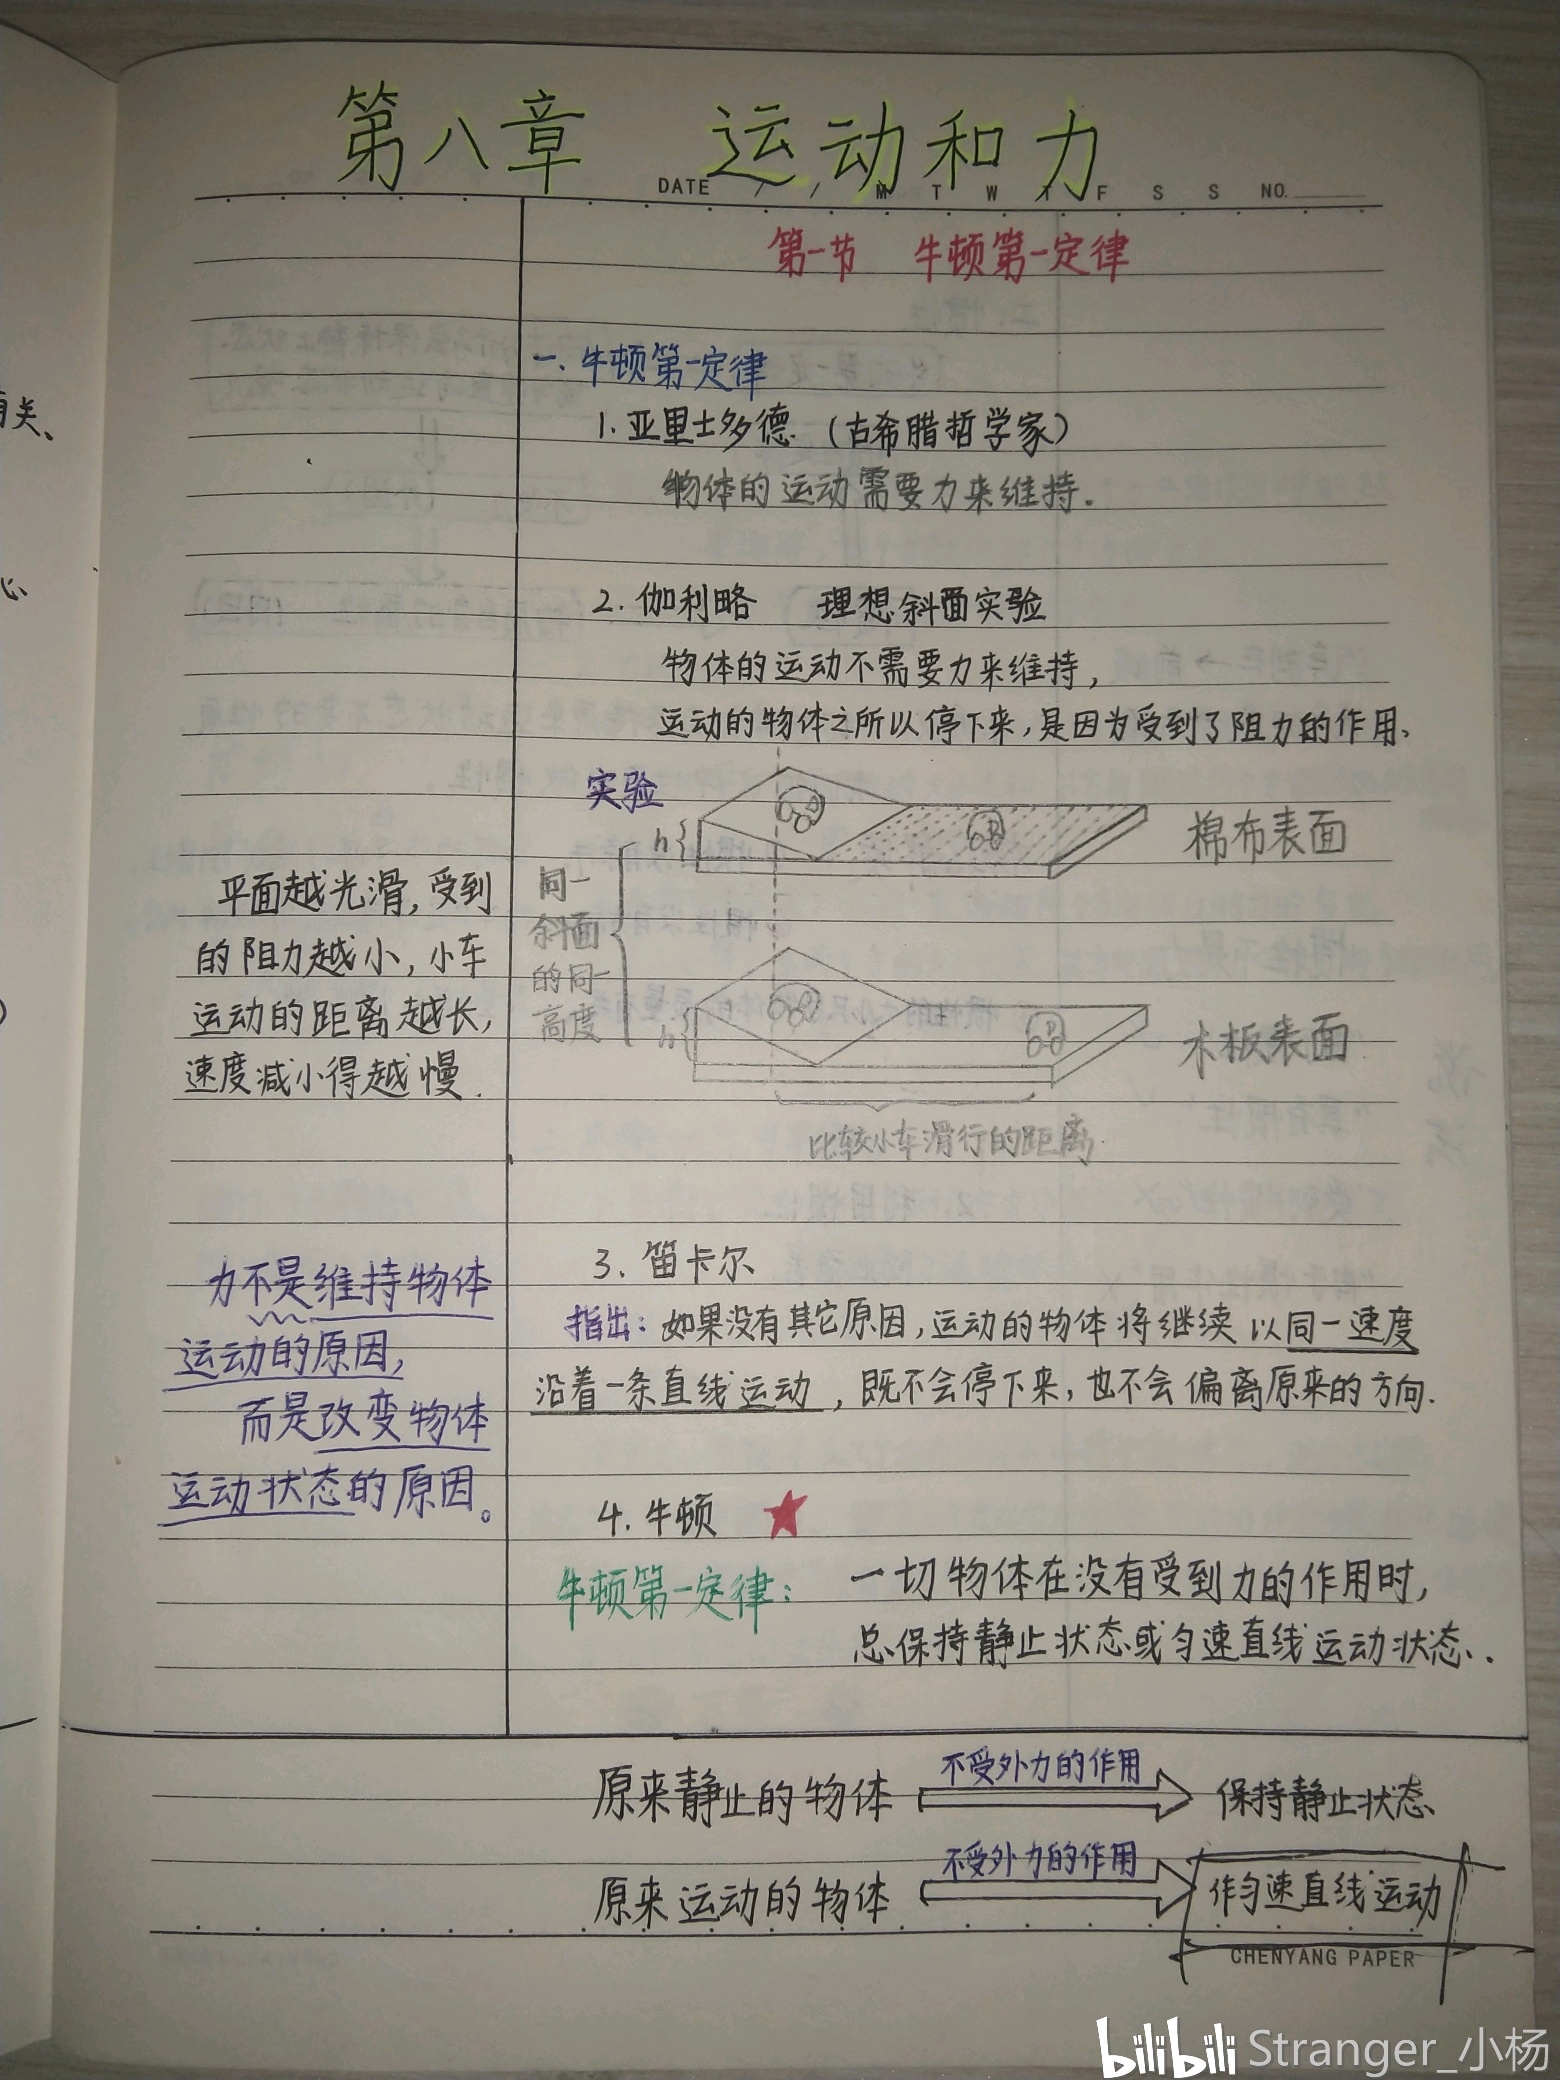 第八章 运动和力
DATE / / M T W T F S S NO.
第一节 牛顿第一定律
一.牛顿第一定律
1.亚里士多德.(古希腊哲学家)
物体的运动需要力来维持.
2.伽利略 理想斜面实验
物体的运动不需要力来维持,
运动的物体之所以停下来,是因为受到了阻力的作用.
实验
h
棉布表面
同一
斜面
的同一
高度
h
木板表面
比较小车滑行的距离.
平面越光滑,受到
的阻力越小,小车
运动的距离越长,
速度减小得越慢.
3.笛卡尔
指出:如果没有其它原因,运动的物体将继续以同一速度
沿着一条直线运动,既不会停下来,也不会偏离原来的方向.
力不是维持物体
运动的原因,
而是改变物体
运动状态的原因。
4.牛顿
牛顿第一定律: 一切物体在没有受到力的作用时,
总保持静止状态或匀速直线运动状态.
原来静止的物体 不受外力的作用 保持静止状态
原来运动的物体 不受外力的作用 作匀速直线运动
CHENYANG PAPER
有关、
心
bilibili Stranger_小杨